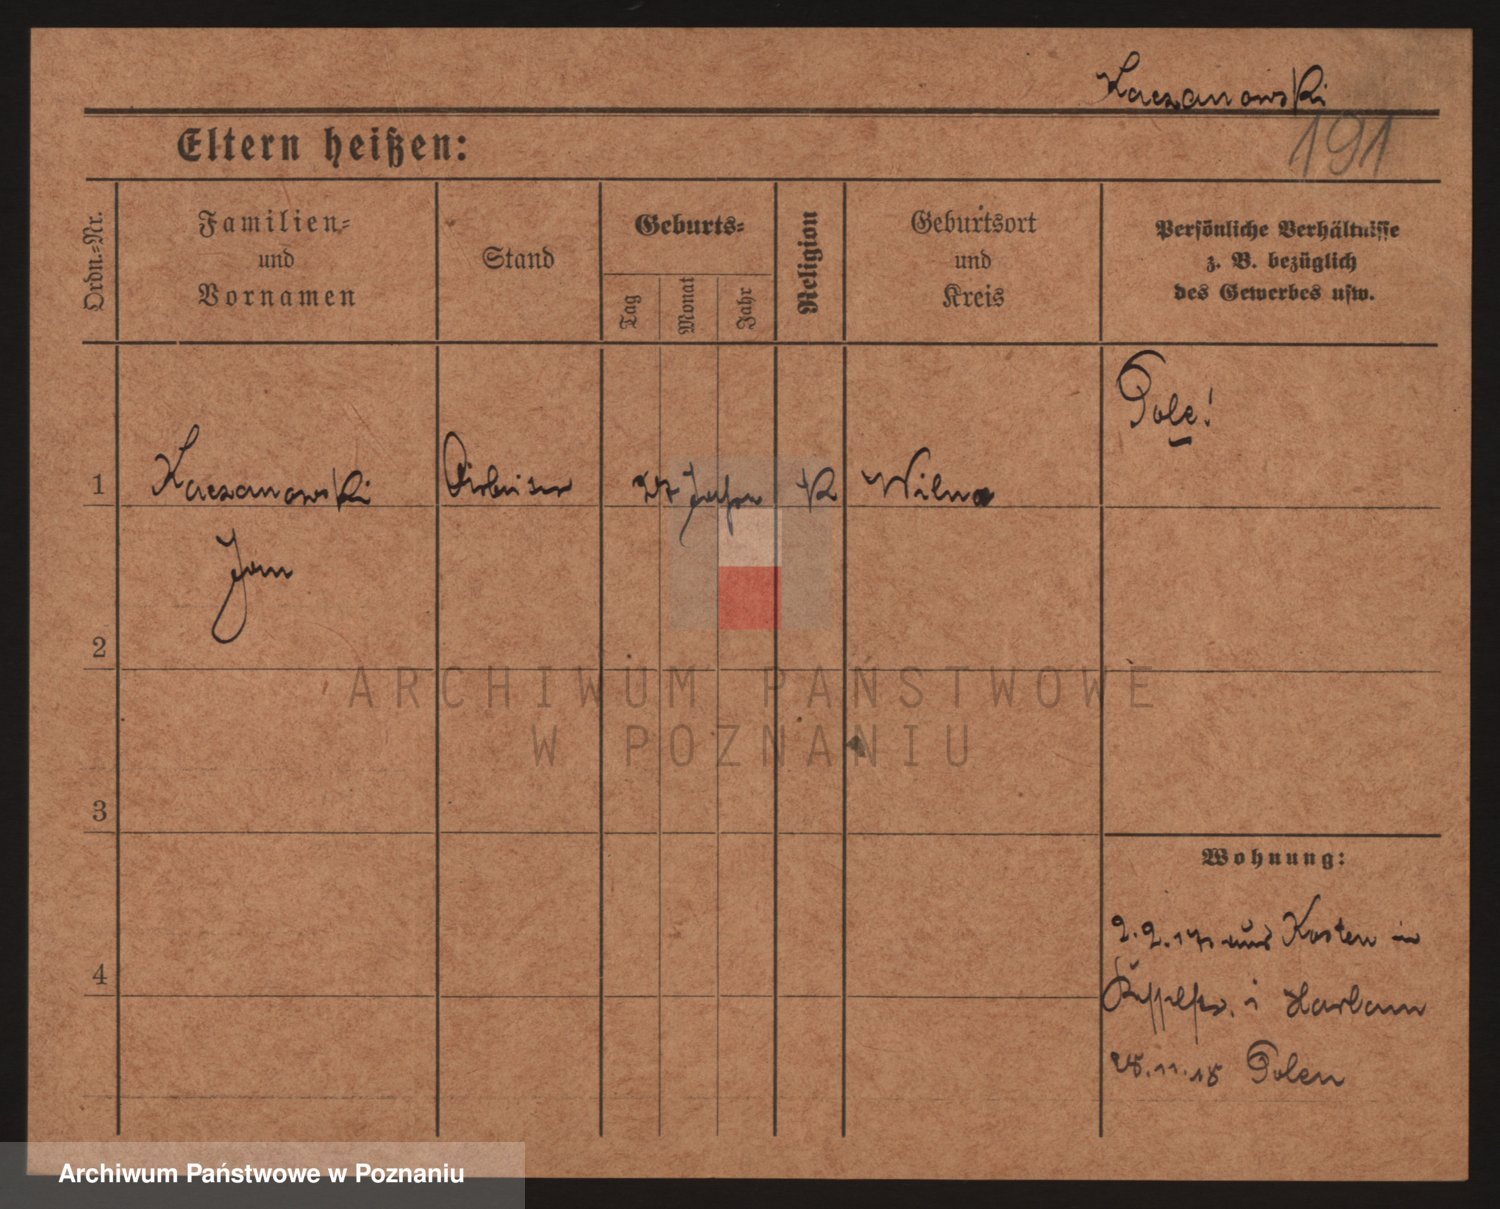 Kaczanowski
191
Eltern heißen:
Ordn.=Nr.
Familien=
und
Vornamen
Stand
Geburts=
Tag
Monat
Jahr
Religion
Geburtsort
und
Kreis
Persönliche Verhältnisse
z. B. bezüglich
des Gewerbes usw.
Pole!
1 Kaczanowski Arbeiter 27 Jahre K Wilna
Jan
2
3
4
Wohnung:
2.2.17 aus Kosten in
i Harlam
28.11.18 Polen
ARCHIWUM PAŃSTWOWE
W POZNANIU
Archiwum Państwowe w Poznaniu